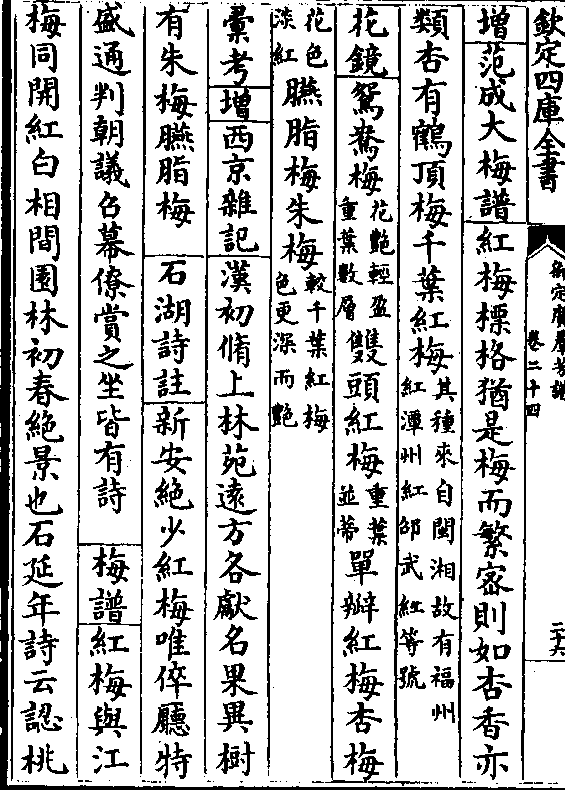 欽定四庫全書
御定廣羣芳譜
卷二十四
二十六
增范成大梅譜紅梅標格猶是梅而繁密則如杏香亦
類杏有鶴頂梅千葉紅梅其種來自閩湘故有福州紅潭州紅邵武紅等號
花鏡鴛鴦梅花艷輕盈重葉數層雙頭紅梅重葉並蒂單瓣紅梅杏梅
花色淡紅臙脂梅朱梅較千葉紅梅色更深而艷
彚考增西京雜記漢初脩上林苑遠方各獻名果異樹
有朱梅臙脂梅 石湖詩註新安絶少紅梅唯倅廳特
盛通判朝議召幕僚賞之坐皆有詩 梅譜紅梅與江
梅同開紅白相間園林初春絶景也石延年詩云認桃